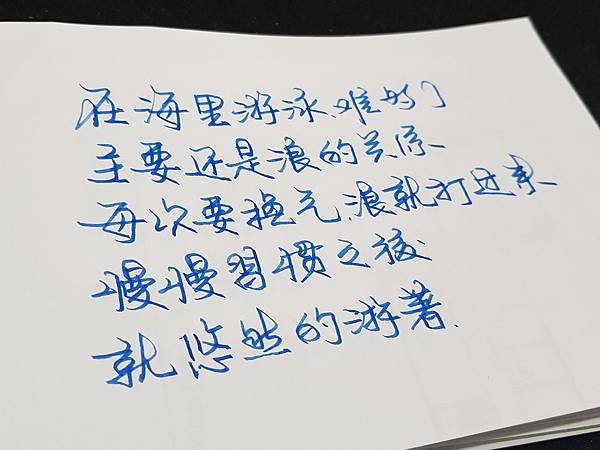 在海里游泳、难的
主要还是浪的关系、
每次要换气、浪就打过来、
慢慢習惯之後
就悠然的游著.